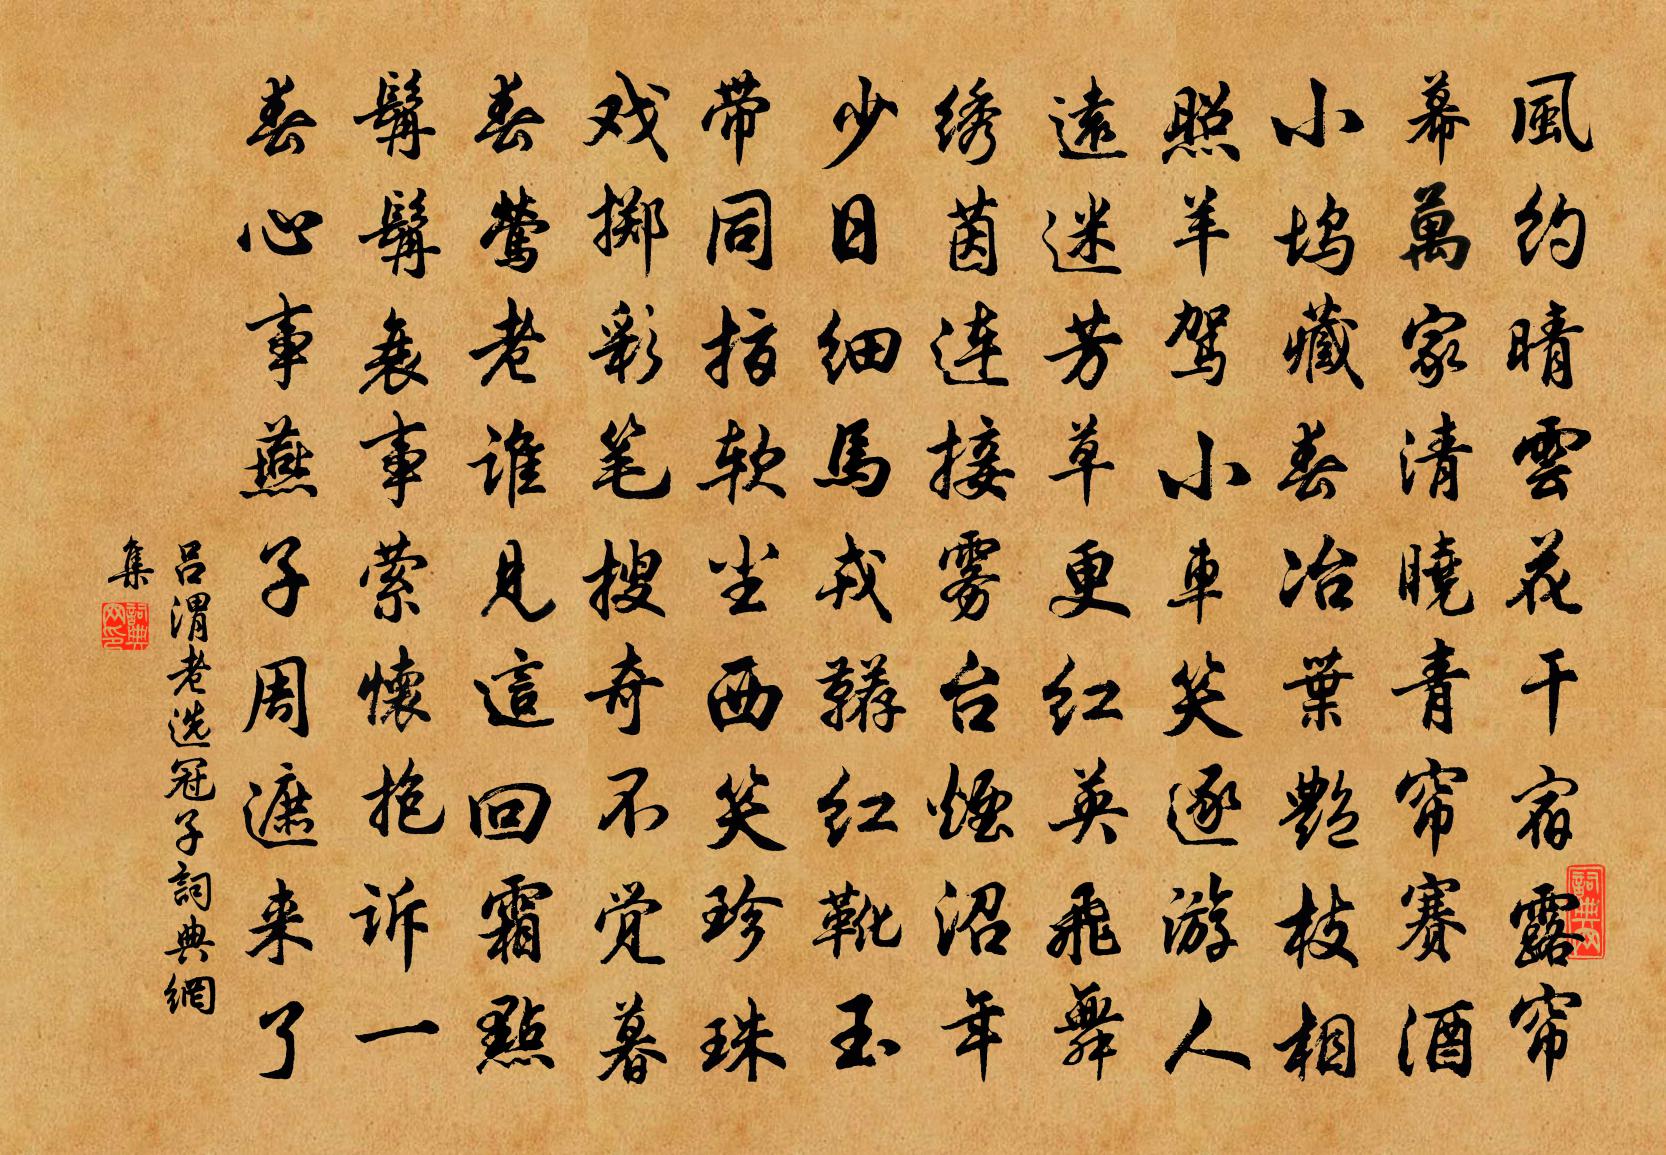 風約晴雲花干宿露帘
幕萬家清曉青帘賽酒
小坞藏春冶葉艷枝相
照羊驾小車笑逐游人
遠迷芳草更红英飛舞
绣茵连接雾台煙沼年
少日细馬戎韝红靴玉
带同指软尘西笑珍珠
戏掷彩笔搜奇不觉暮
春鶯老谁見這回霜點
髯髯衰事萦懷抱诉一
春心事燕子周遮来了
吕渭老选冠子詞典網
集
詞典网
詞典网印